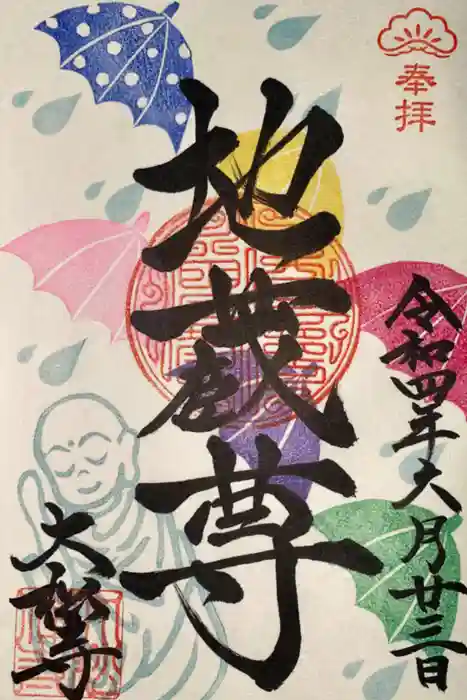 奉拝
令和四年六月廿三日
地蔵尊
大樹寺